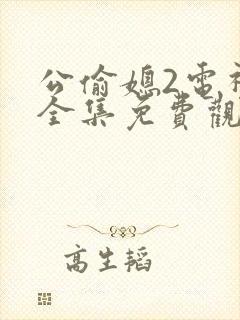 公偷媳2電視
全集免費觀
高生韜